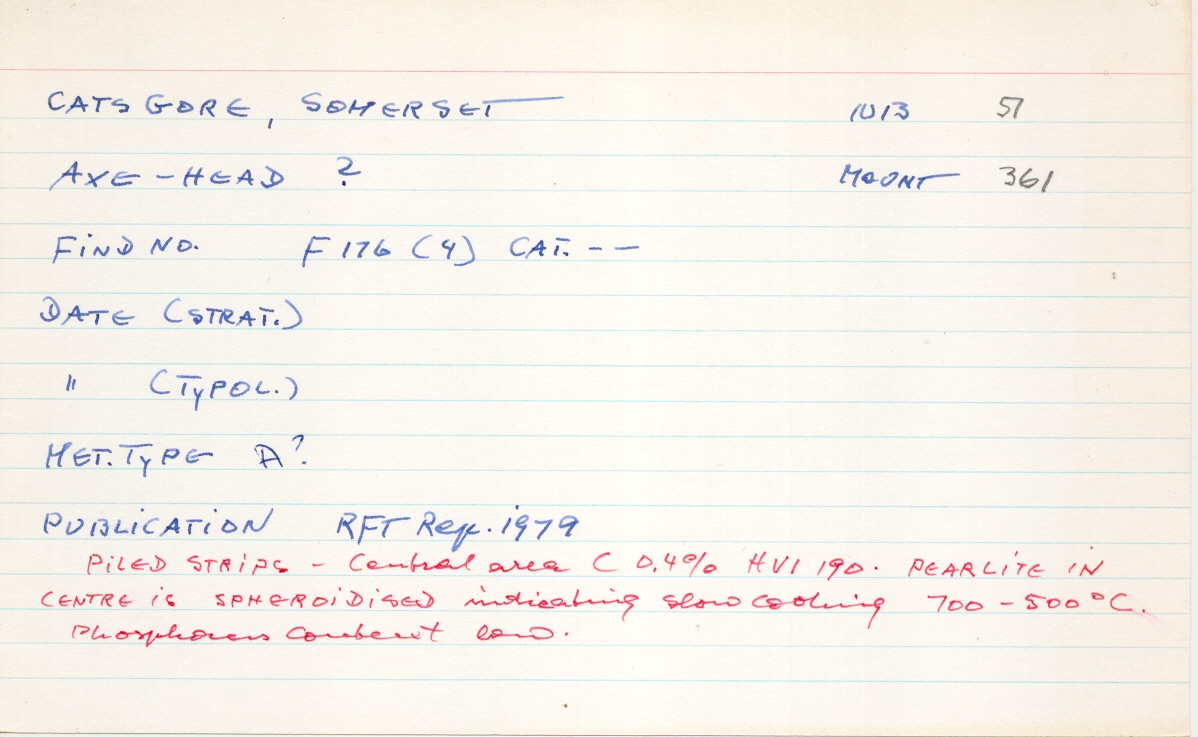 CATSGORE, SOMERSET 1013 51
AXE-HEAD ? MOUNT 361
FIND NO. F176 (4) CAT. --
DATE (STRAT.)
" (TYPOL.)
MET. TYPE A?
PUBLICATION RFT Rep. 1979
PILED STRIPS - Central area C 0.4% HV1 190. PEARLITE IN
CENTRE IS SPHEROIDISED indicating slow cooling 700-500°C.
Phosphorus content low.